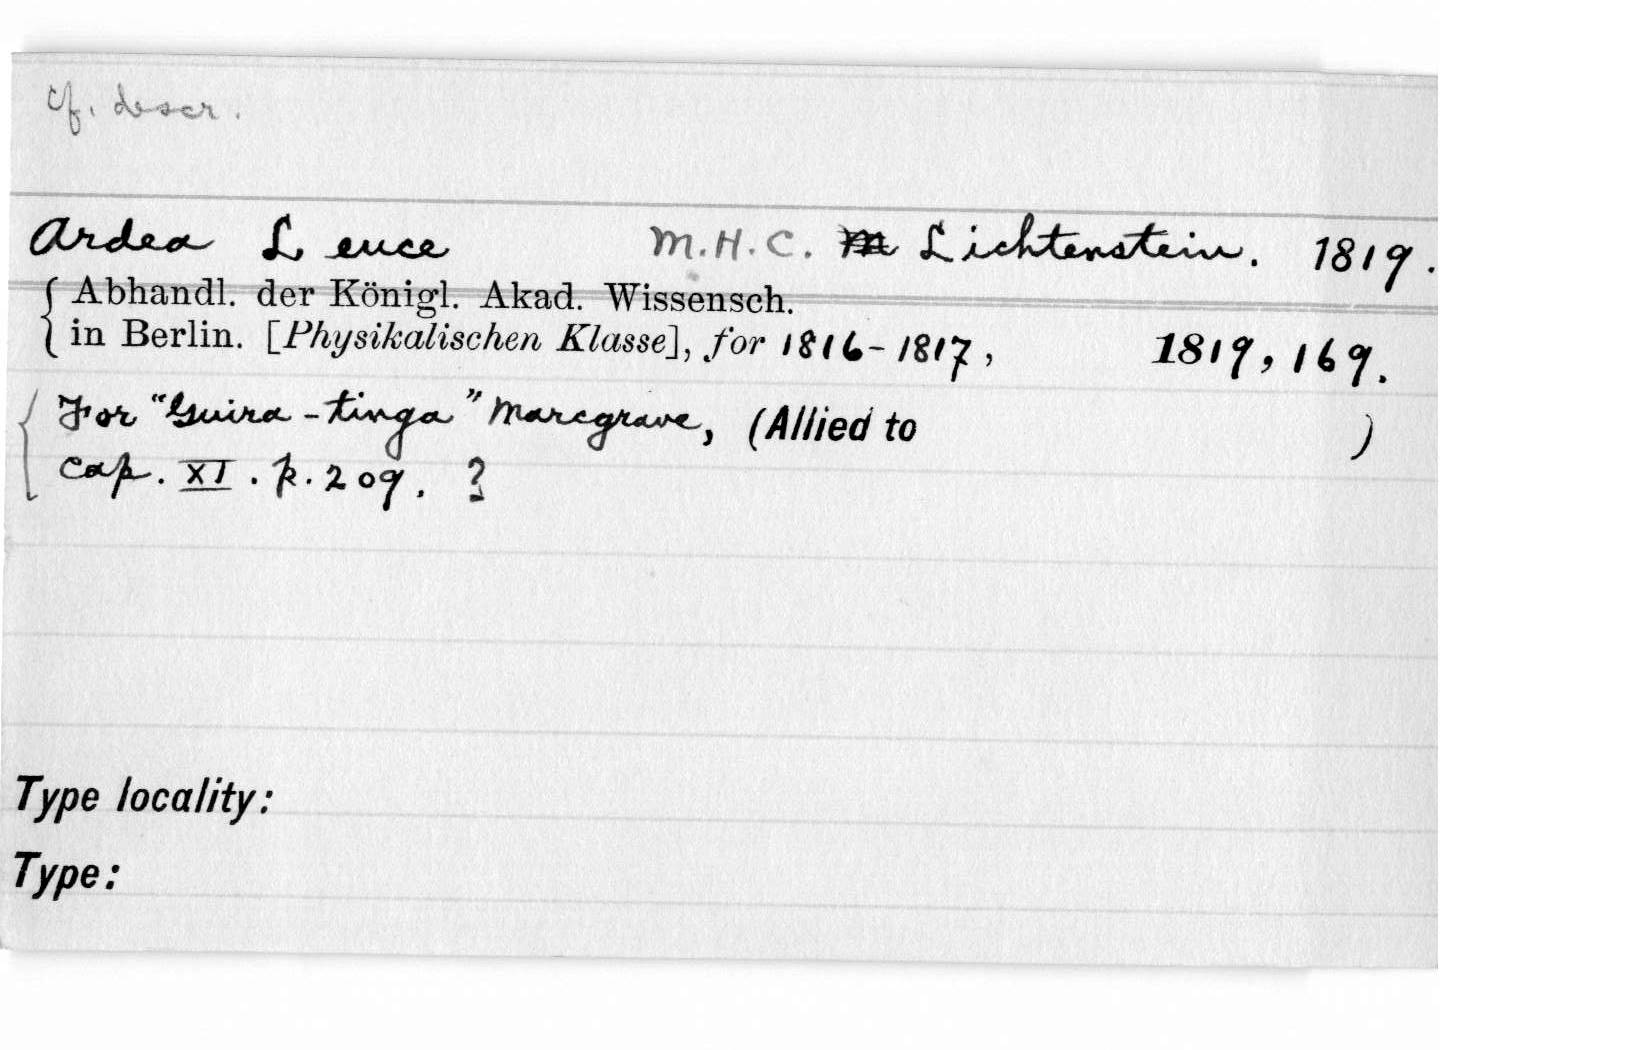 cf. descr.
Ardea Leuce M.H.C. Lichtenstein. 1819.
Abhandl. der Königl. Akad. Wissensch.
in Berlin. [Physikalischen Klasse], for 1816-1817, 1819, 169.
For "Guira-tinga" Marcgrave, (Allied to )
cap. XI. p. 209. ?
Type locality:
Type: